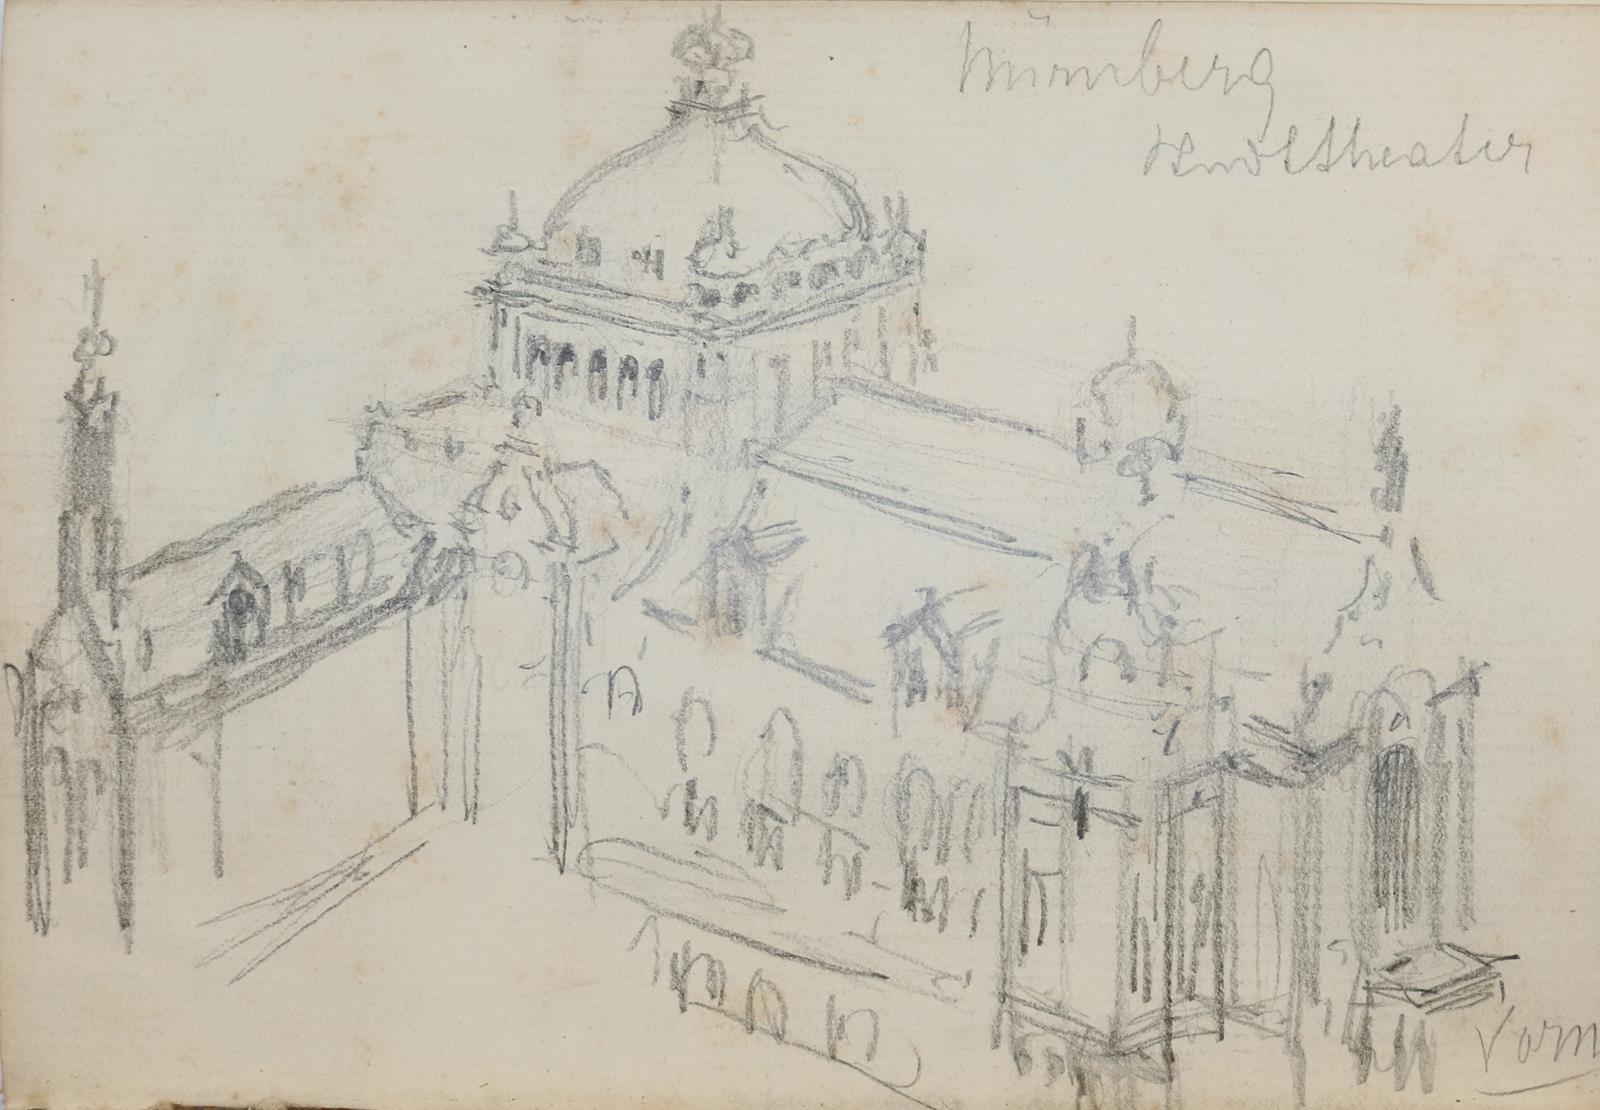 Nürnberg
Stadttheater
Vorn